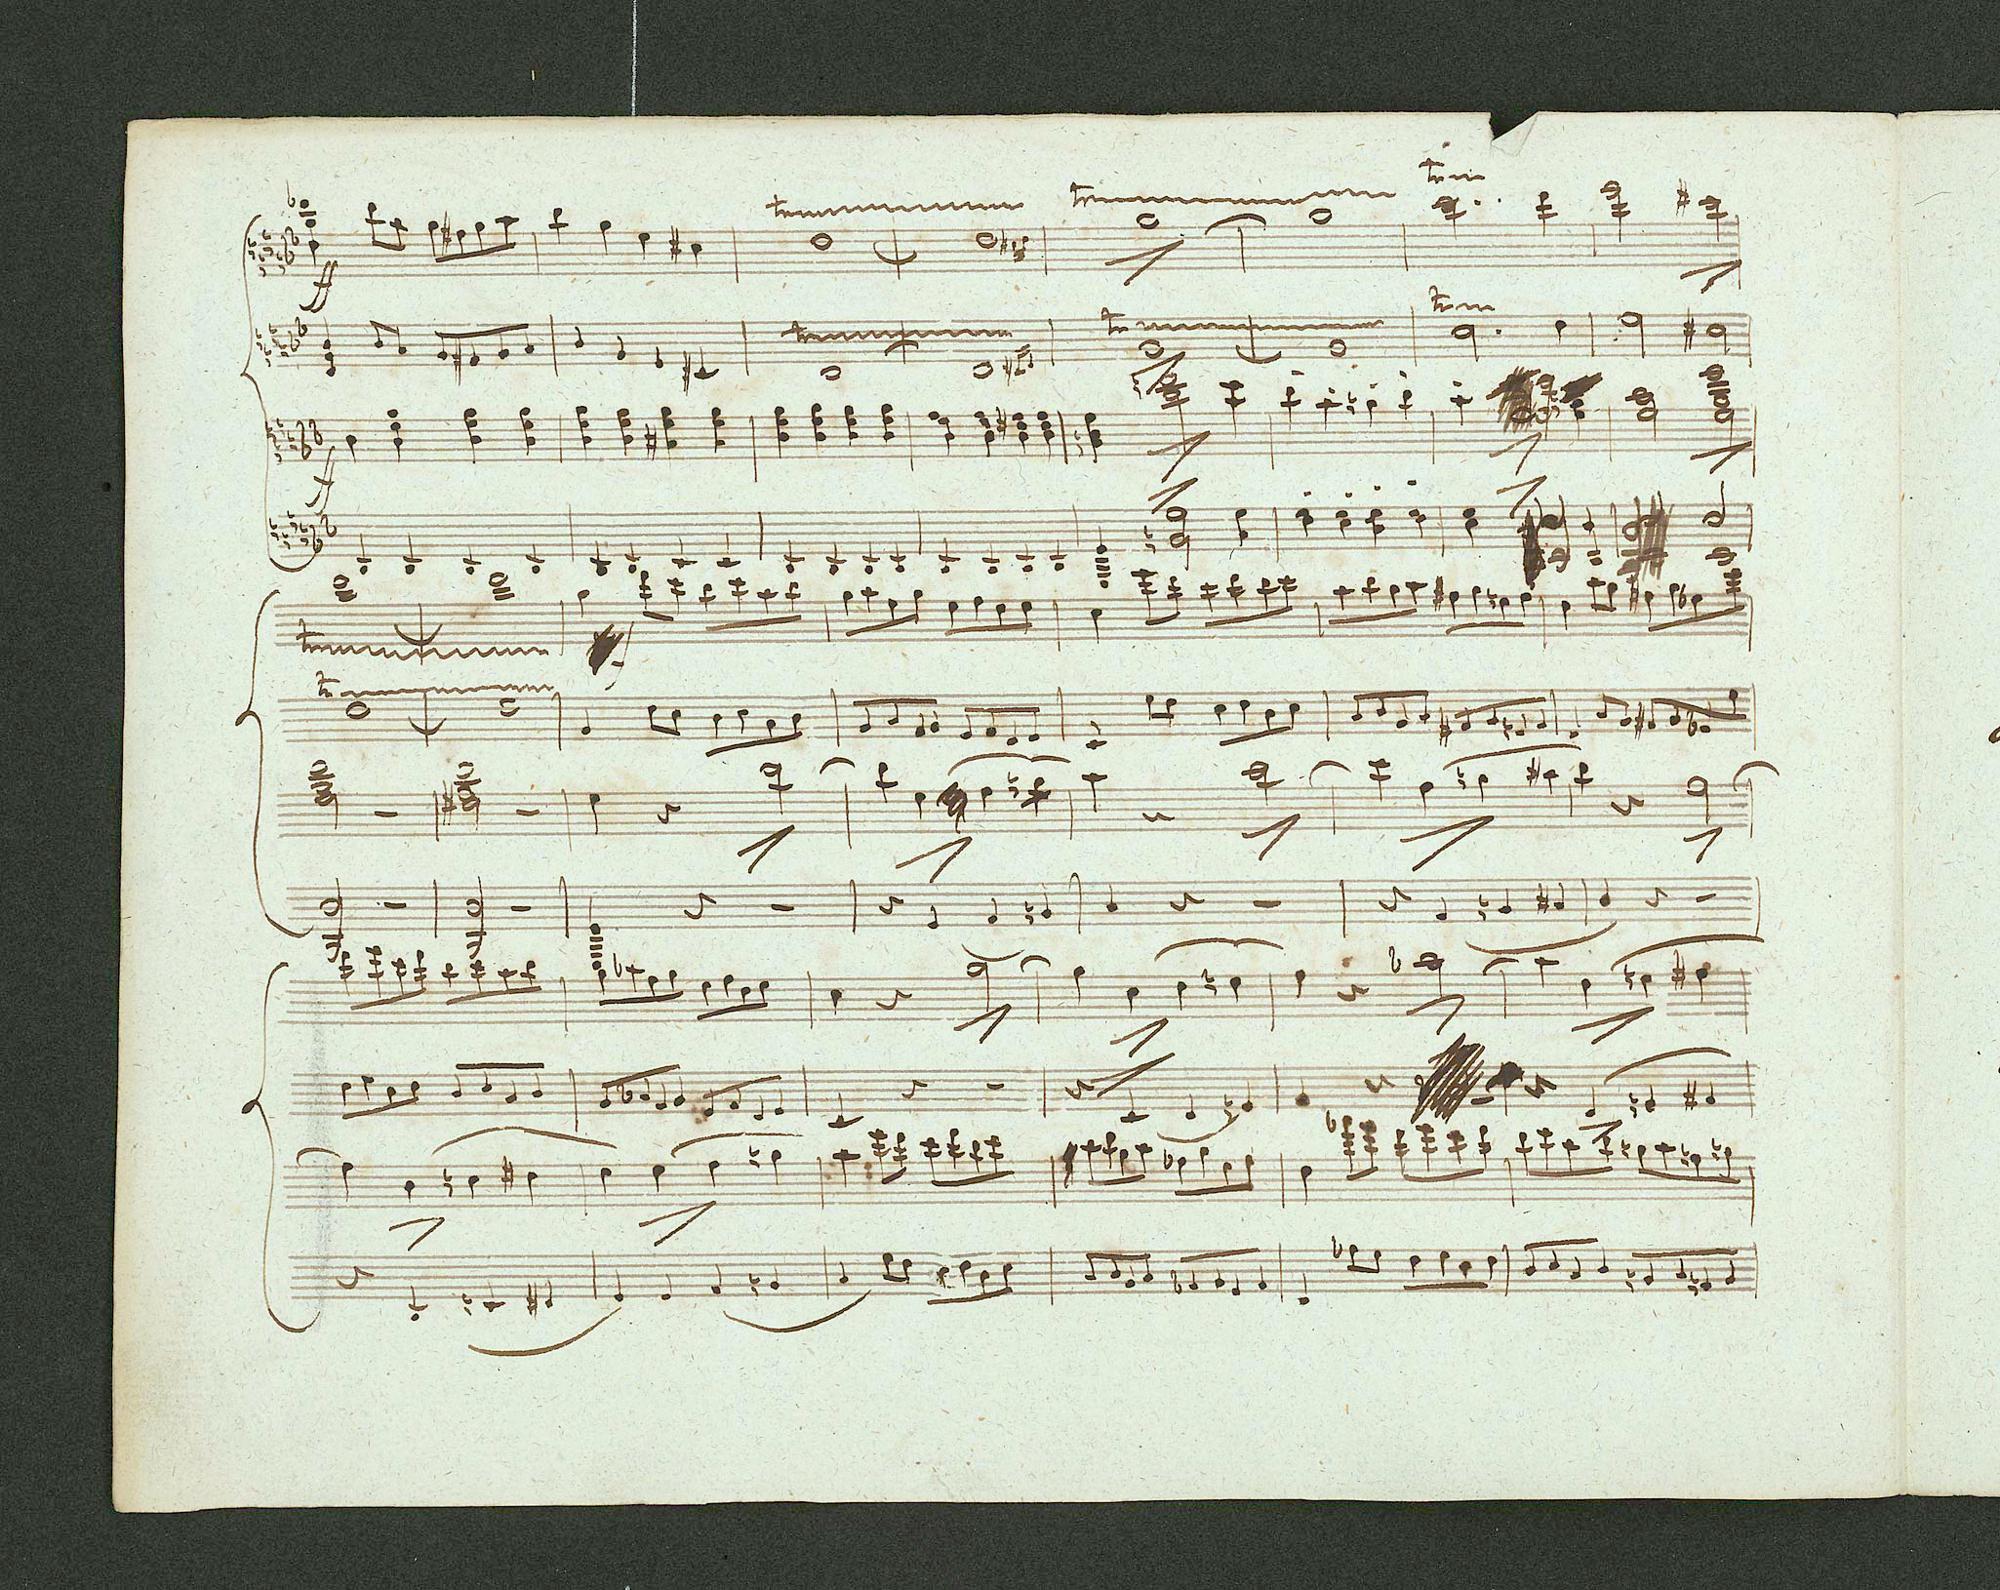 tr
tr
tr
ff
tr
tr
tr
ff
tr
tr